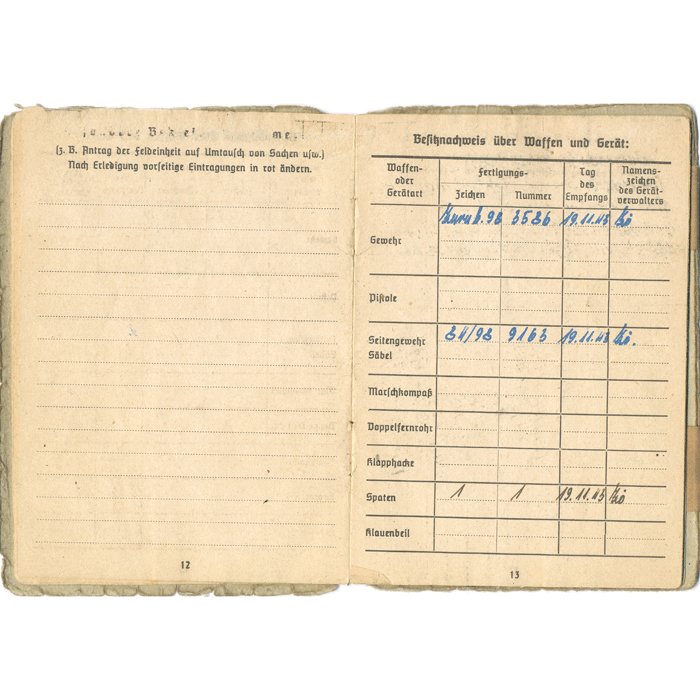 (z. B. Antrag der Feldeinheit auf Umtausch von Sachen usw.)
Nach Erledigung vorseitige Eintragungen in rot ändern.
12
Besitznachweis über Waffen und Gerät:
Waffen- oder Gerätart
Fertigungs-
Zeichen
Nummer
Tag des Empfangs
Namens- zeichen des Gerät- verwalters
Gewehr 98 3586 19.11.43 Kö
Pistole
Seitengewehr Säbel 84/98 9163 19.11.43 Kö.
Marschkompaß
Doppelfernrohr
Klapphacke
Spaten 1 1 19.11.43 Kö
Klauenbeil
13